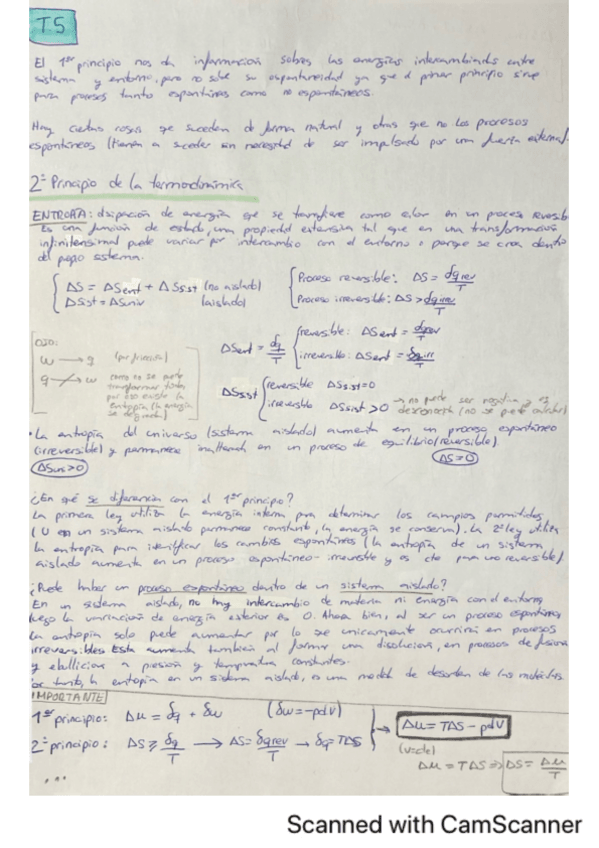 T5
El 1er principio nos da información sobre las energías intercambiadas entre
sistema y entorno, pero no sobre su espontaneidad ya que el primer principio sirve
para procesos tanto espontáneos como no espontáneos.
Hay ciertas cosas que suceden de forma natural y otras que no. Los procesos
espontáneos (tienen a suceder sin necesidad de ser impulsado por una fuerza externa).
2º Principio de la termodinámica
ENTROPÍA: disipación de energía que se transfiere como calor en un proceso reversib
Es una función de estado, una propiedad extensiva tal que en una transformación
infinitesimal puede variar por intercambio con el entorno o porque se crea dentro
del propio sistema.
ΔS = ΔSent + ΔSsist (no aislado)
ΔSsist = ΔSuniv (aislado)
Proceso reversible: ΔS = δqrev/T
Proceso irreversible: ΔS > δqirrev/T
OJO:
w → q (por fricción)
q ↛ w como no se puede
transformar todo
por eso existe la
entropía (la energía
se degrada)
ΔSent = δq/T
reversible: ΔSent = δqrev/T
irreversible: ΔSent = δqirr/T
ΔSsist
reversible ΔSsist=0
irreversible ΔSsist>0 → no puede ser negativa y es
desconocida (no se puede calcular)
• La entropía del universo (sistema aislado) aumenta en un proceso espontáneo
(irreversible) y permanece inalterada en un proceso de equilibrio (reversible)
ΔSuni>0
ΔS=0
¿En qué se diferencia con el 1er principio?
La primera ley utiliza la energía interna para determinar los cambios permitidos
(U en un sistema aislado permanece constante, la energía se conserva). La 2º ley utiliza
la entropía para identificar los cambios espontáneos (la entropía de un sistema
aislado aumenta en un proceso espontáneo - irreversible y es cte para uno reversible)
¿Puede haber un proceso espontáneo dentro de un sistema aislado?
En un sistema aislado, no hay intercambio de materia ni energía con el entorno
luego la variación de energía exterior es 0. Ahora bien, al ser un proceso espontáneo
la entropía solo puede aumentar por lo que unicamente ocurrirá en procesos
irreversibles. Esta aumenta también al formar una disolución, en procesos de fusión
y ebullición a presión y temperatura constantes.
Por tanto, la entropía en un sistema aislado, es una medida de desorden de las moléculas.
IMPORTANTE
1er principio: Δu = δq + δw (δw=-pdv)
2º principio: ΔS ≥ δq/T → ΔS = δqrev/T → δq = TΔS
→ Δu = TΔS - pdv
(v=cte)
Δu = TΔS ⇒ ΔS = Δu/T
...
Scanned with CamScanner